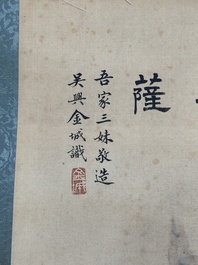 薩
吾家三妹敬造
吳興金城識